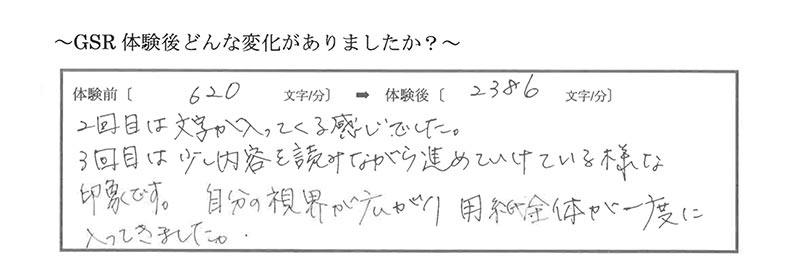 ～GSR 体験後どんな変化がありましたか？～
体験前〔 620 文字/分〕 ➡ 体験後〔 2386 文字/分〕
2回目は文字が入ってくる感じでした。
3回目は少し内容を読みながら進めていけている様な
印象です。 自分の視界が広がり 用紙全体が一度に
入ってきました。